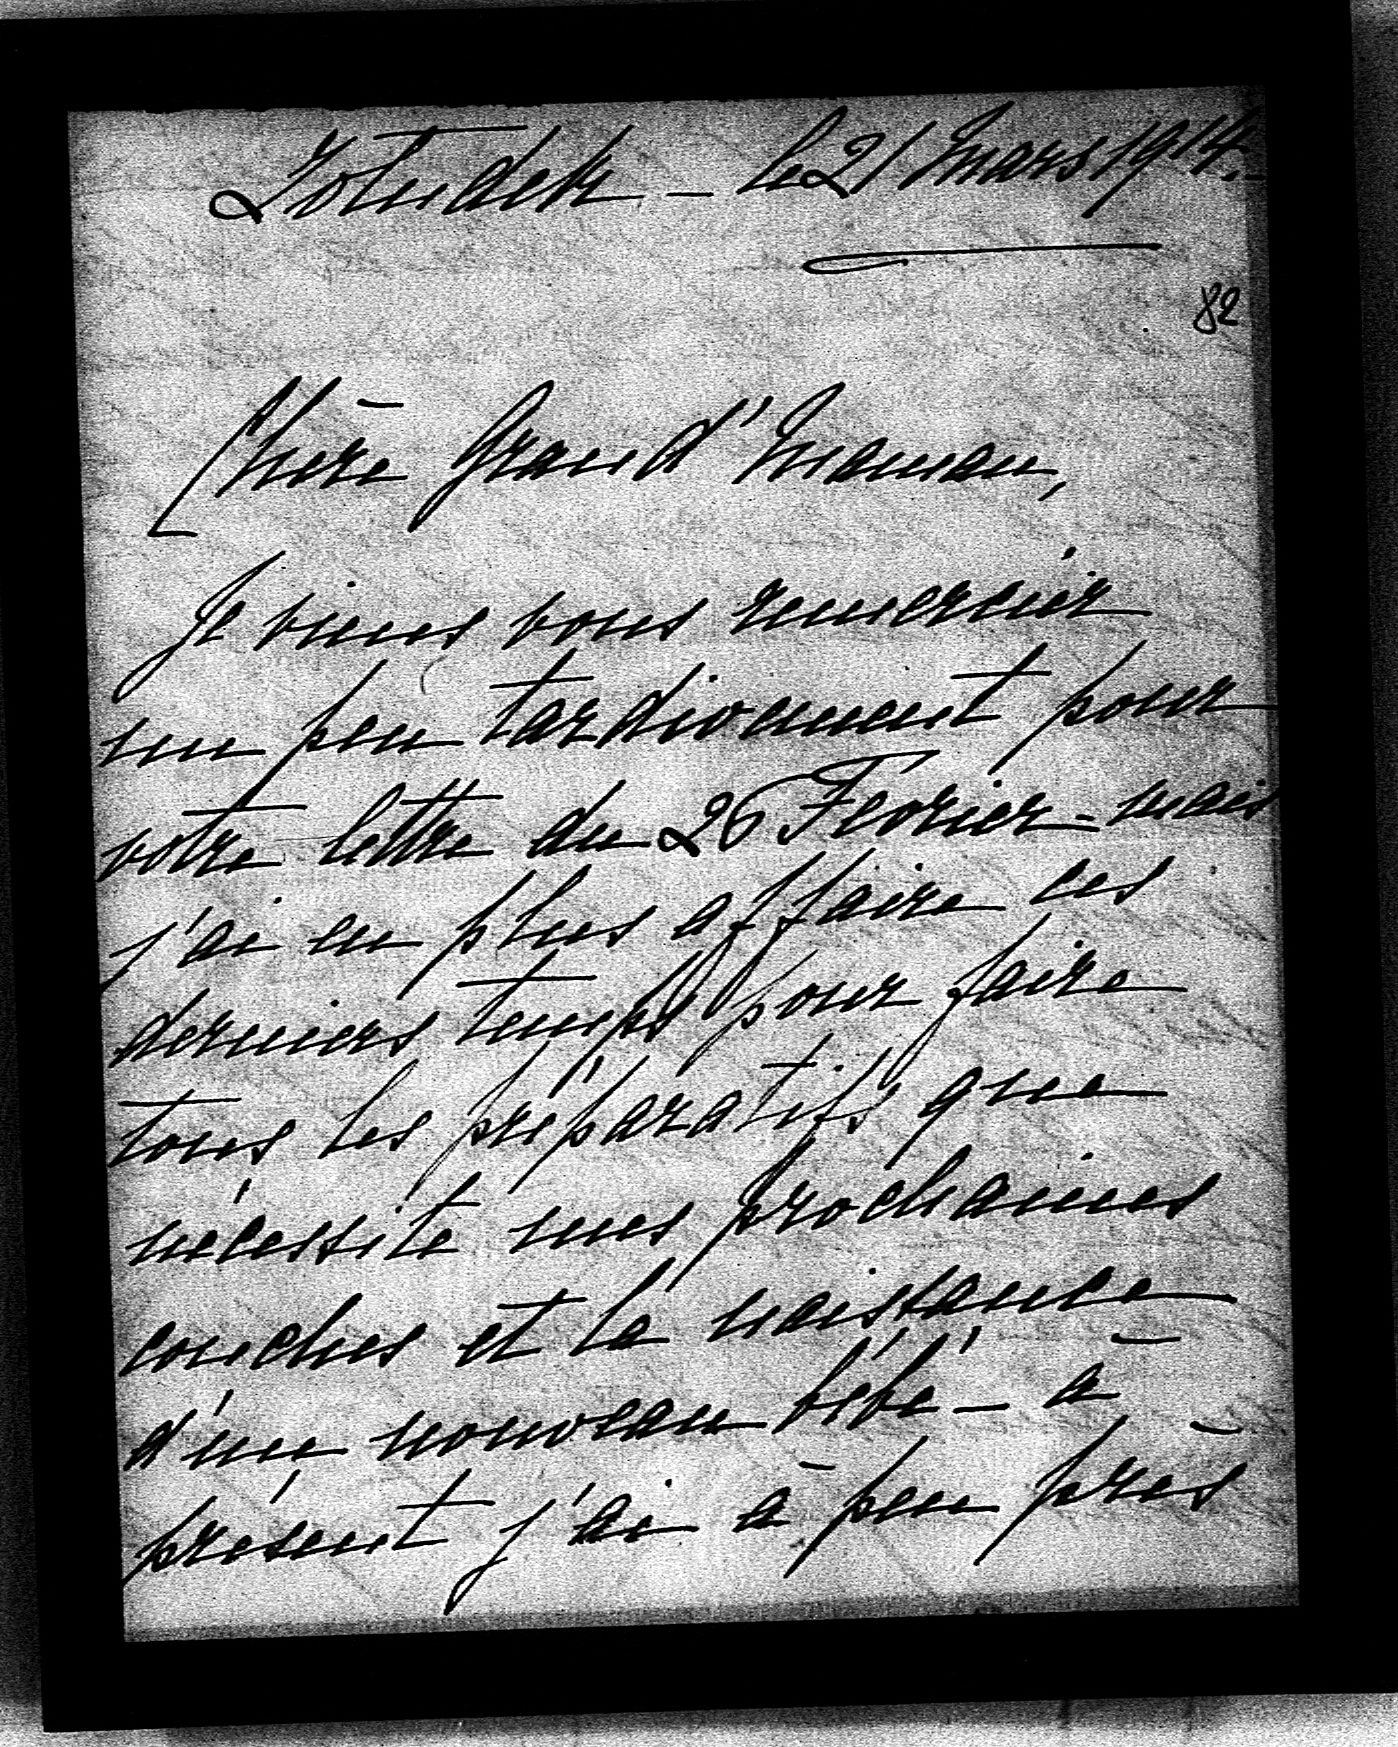 Żołudek – le 21 Mars 1914.–
82
Chère Grand'Maman,
Je viens vous remercier
un peu tardivement pour
votre lettre du 26 Fevrier – mais
j'ai eu plus affaire ces
derniers temps pour faire
tous les préparatifs que
nécessite mes prochaines
couches et la naissance
d'un nouveau bébé – à
présent j'ai à peu près